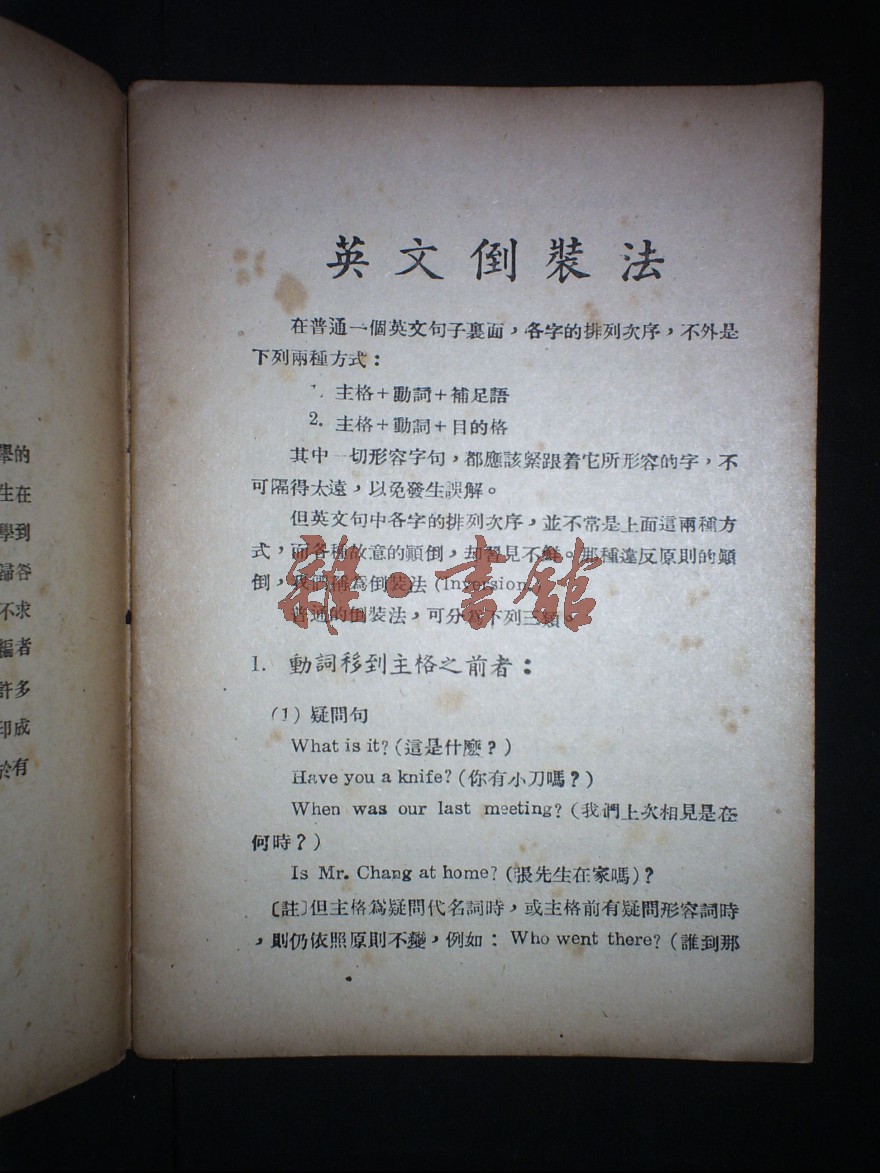 舉的
生在
學到
歸咎
不求
編者
許多
印成
於有
英文倒裝法
在普通一個英文句子裏面，各字的排列次序，不外是
下列兩種方式：
1. 主格+動詞+補足語
2. 主格+動詞+目的格
其中一切形容字句，都應該緊跟着它所形容的字，不
可隔得太遠，以免發生誤解。
但英文句中各字的排列次序，並不常是上面這兩種方
式，而各種故意的顚倒，却習見不鮮。那種違反原則的顚
倒，我們稱為倒裝法 (Inversion)
普通的倒裝法，可分為下列三類。
雜·書館
1. 動詞移到主格之前者：
(1) 疑問句
What is it? (這是什麼？)
Have you a knife? (你有小刀嗎？)
When was our last meeting? (我們上次相見是在
何時？)
Is Mr. Chang at home? (張先生在家嗎)？
〔註〕但主格為疑問代名詞時，或主格前有疑問形容詞時
，則仍依照原則不變，例如：Who went there? (誰到那